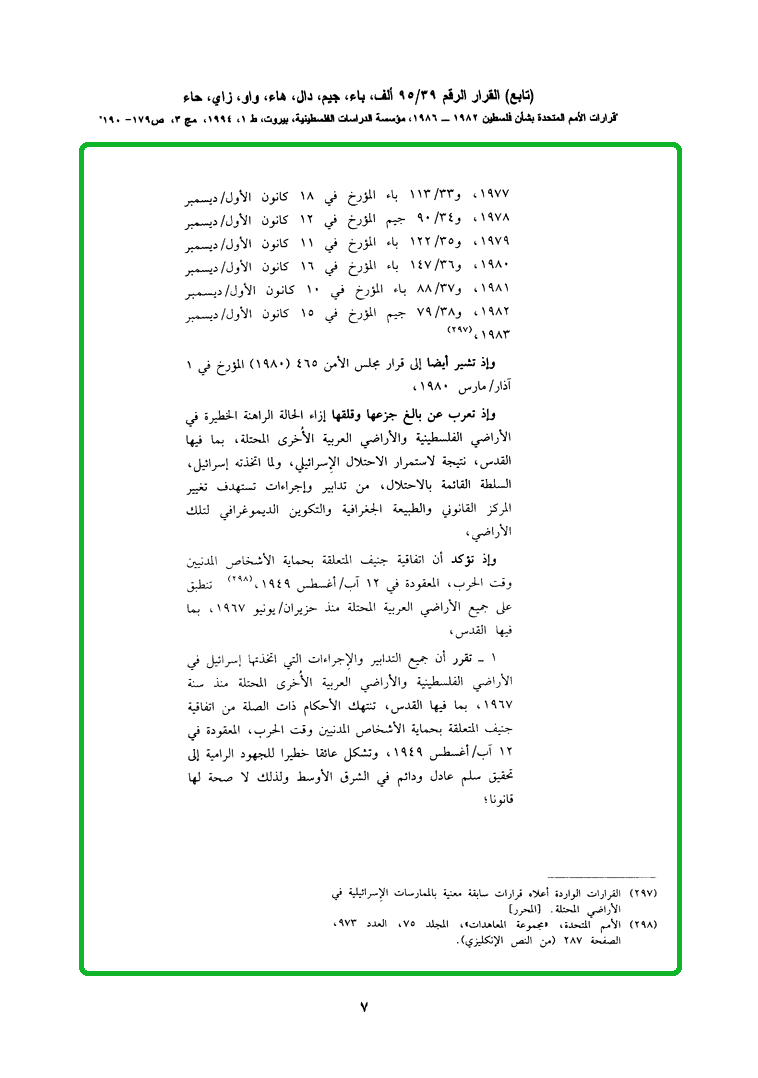 (تابع) القرار الرقم ٩٥/٣٩ ألف، باء، جيم، دال، هاء، واو، زاي، حاء
"قرارات الأمم المتحدة بشأن فلسطين ١٩٨٢ – ١٩٨٦، مؤسسة الدراسات الفلسطينية، بيروت، ط ١، ١٩٩٤، مج ٣، ص١٧٩- ١٩٠"
١٩٧٧، و١١٣/٣٣ باء المؤرخ في ١٨ كانون الأول/ديسمبر
١٩٧٨، و٩٠/٣٤ جيم المؤرخ في ١٢ كانون الأول/ديسمبر
١٩٧٩، و١٢٢/٣٥ باء المؤرخ في ١١ كانون الأول/ديسمبر
١٩٨٠، و١٤٧/٣٦ باء المؤرخ في ١٦ كانون الأول/ديسمبر
١٩٨١، و٨٨/٣٧ باء المؤرخ في ١٠ كانون الأول/ديسمبر
١٩٨٢، و٧٩/٣٨ جيم المؤرخ في ١٥ كانون الأول/ديسمبر
١٩٨٣،(٢٩٧)
وإذ تشير أيضا إلى قرار مجلس الأمن ٤٦٥ (١٩٨٠) المؤرخ في ١
آذار/مارس ١٩٨٠،
وإذ تعرب عن بالغ جزعها وقلقها إزاء الحالة الراهنة الخطيرة في
الأراضي الفلسطينية والأراضي العربية الأخرى المحتلة، بما فيها
القدس، نتيجة لاستمرار الاحتلال الإسرائيلي، ولما اتخذته إسرائيل،
السلطة القائمة بالاحتلال، من تدابير وإجراءات تستهدف تغيير
المركز القانوني والطبيعة الجغرافية والتكوين الديموغرافي لتلك
الأراضي،
وإذ تؤكد أن اتفاقية جنيف المتعلقة بحماية الأشخاص المدنيين
وقت الحرب، المعقودة في ١٢ آب/أغسطس ١٩٤٩،(٢٩٨) تنطبق
على جميع الأراضي العربية المحتلة منذ حزيران/يونيو ١٩٦٧، بما
فيها القدس،
١ – تقرر أن جميع التدابير والإجراءات التي اتخذتها إسرائيل في
الأراضي الفلسطينية والأراضي العربية الأخرى المحتلة منذ سنة
١٩٦٧، بما فيها القدس، تنتهك الأحكام ذات الصلة من اتفاقية
جنيف المتعلقة بحماية الأشخاص المدنيين وقت الحرب، المعقودة في
١٢ آب/أغسطس ١٩٤٩، وتشكل عائقا خطيرا للجهود الرامية إلى
تحقيق سلم عادل ودائم في الشرق الأوسط ولذلك لا صحة لها
قانونا؛
(٢٩٧) القرارات الواردة أعلاه قرارات سابقة معنية بالممارسات الإسرائيلية في
الأراضي المحتلة. [المحرر]
(٢٩٨) الأمم المتحدة، «مجموعة المعاهدات»، المجلد ٧٥، العدد ٩٧٣،
الصفحة ٢٨٧ (من النص الإنكليزي).
٧